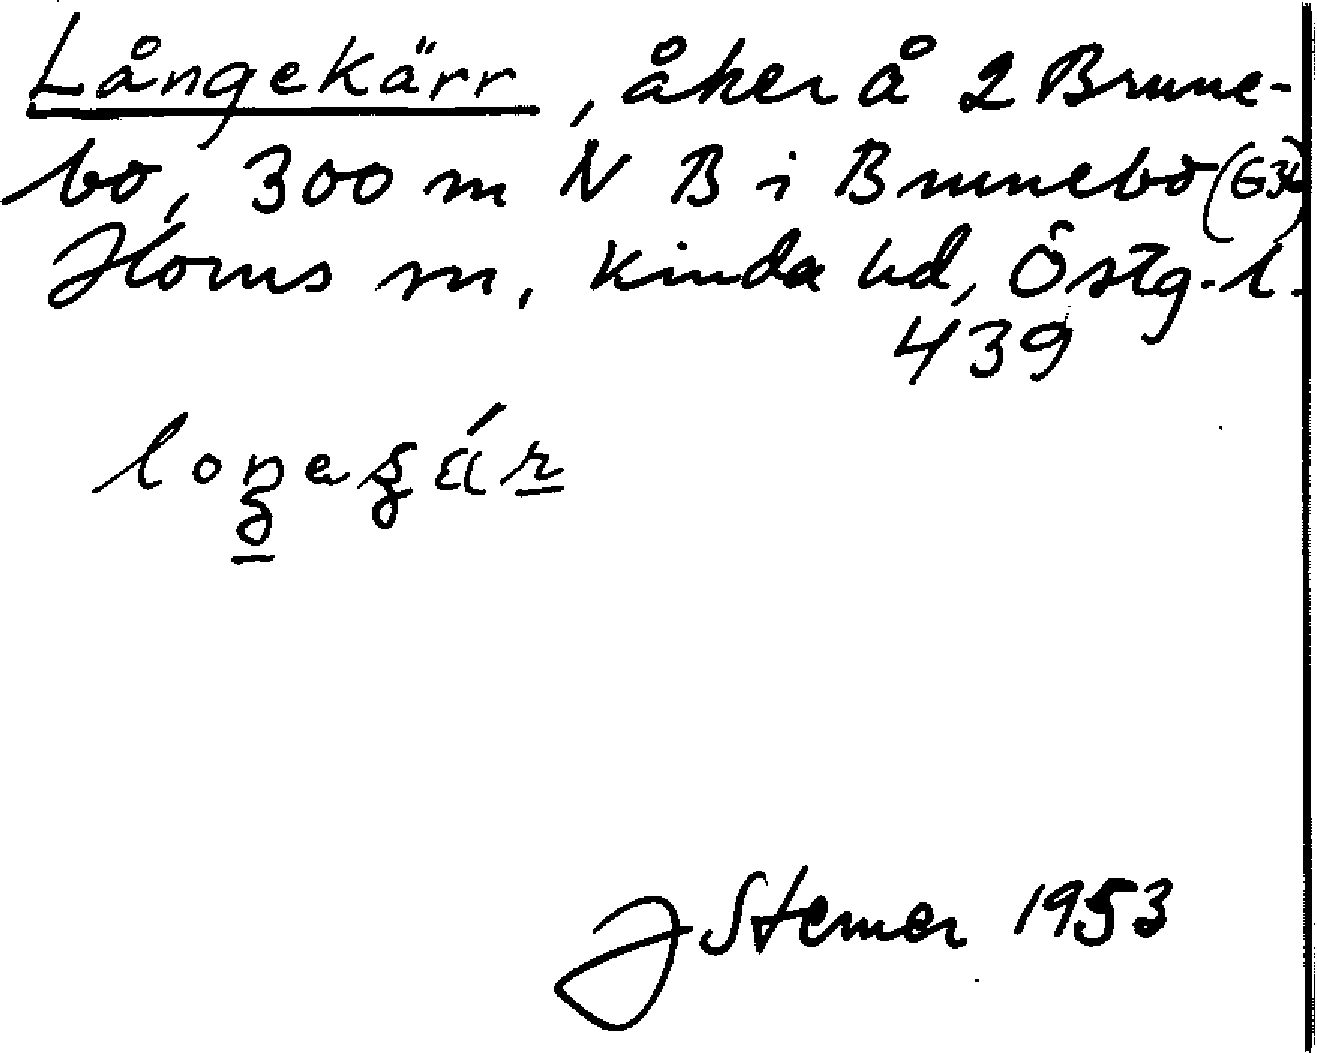 Långekärr, åker å 2 Brune-
bo, 300 m N B i Brunebo (G34)
Horns sn, Kinda hd, Östg. l.
439
J Sterner 1953